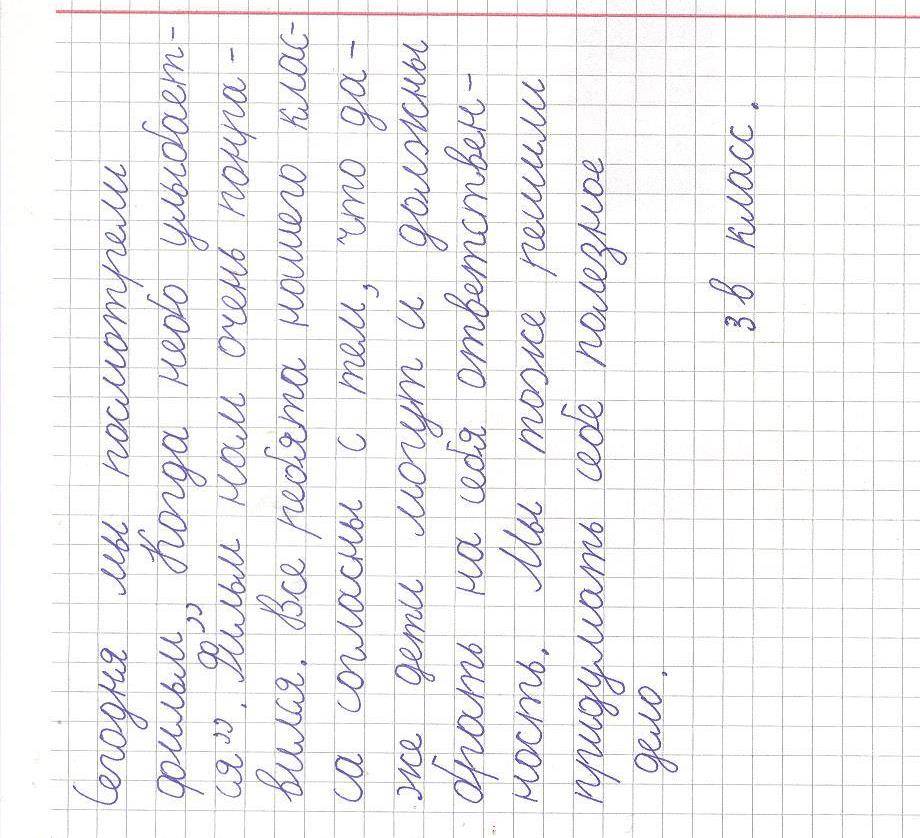 Сегодня мы посмотрели
фильм „Когда небо улыбает-
ся”. Фильм нам очень понра-
вился. Все ребята нашего клас-
са согласны с тем, что да-
же дети могут и должны
брать на себя ответствен-
ность. Мы тоже решили
придумать себе полезное
дело.
3 в класс.